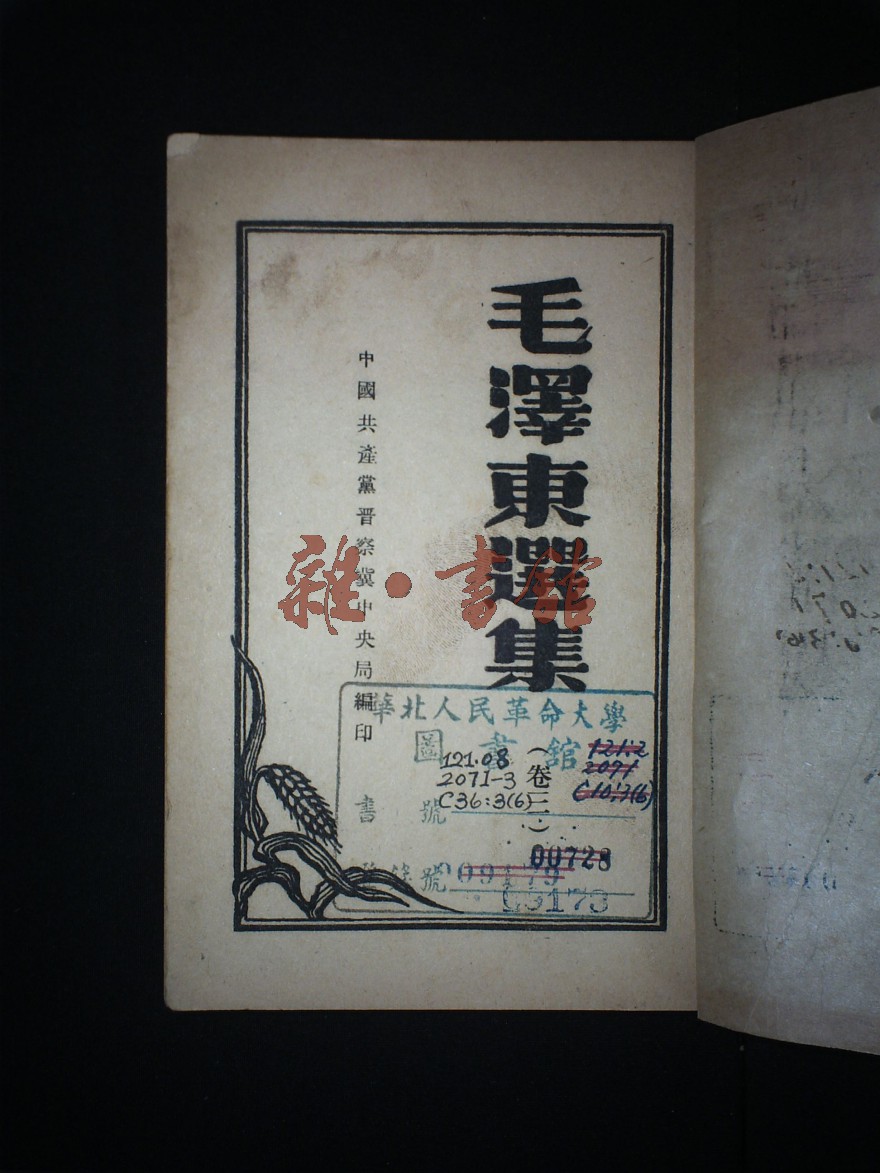 毛澤東選集
(卷三)
中國共產黨晋察冀中央局編印
雜·書館
華北人民革命大學
圖書館
121.08
2071-3
C36:3(6)
121.2
2071
C10:3(6)
書 號
00728
號 009179